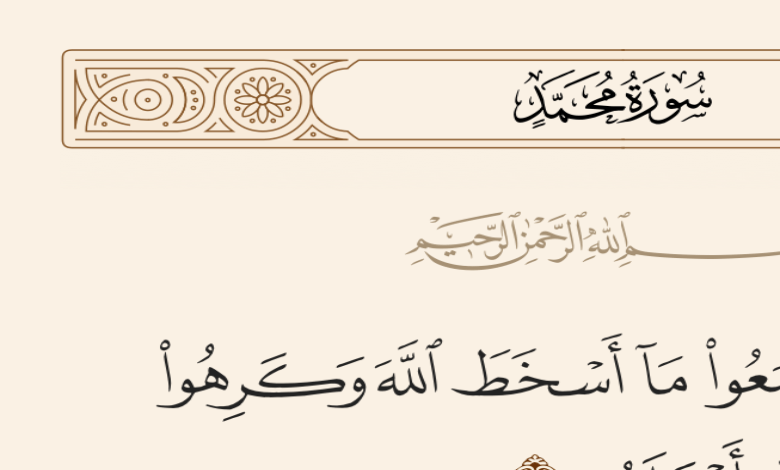 سُورَةُ مُحَمَّدٍ
ٱللَّهِ ٱلرَّحْمَٰنِ ٱلرَّحِيمِ
مَآ أَسْخَطَ ٱللَّهَ وَكَرِهُوا۟